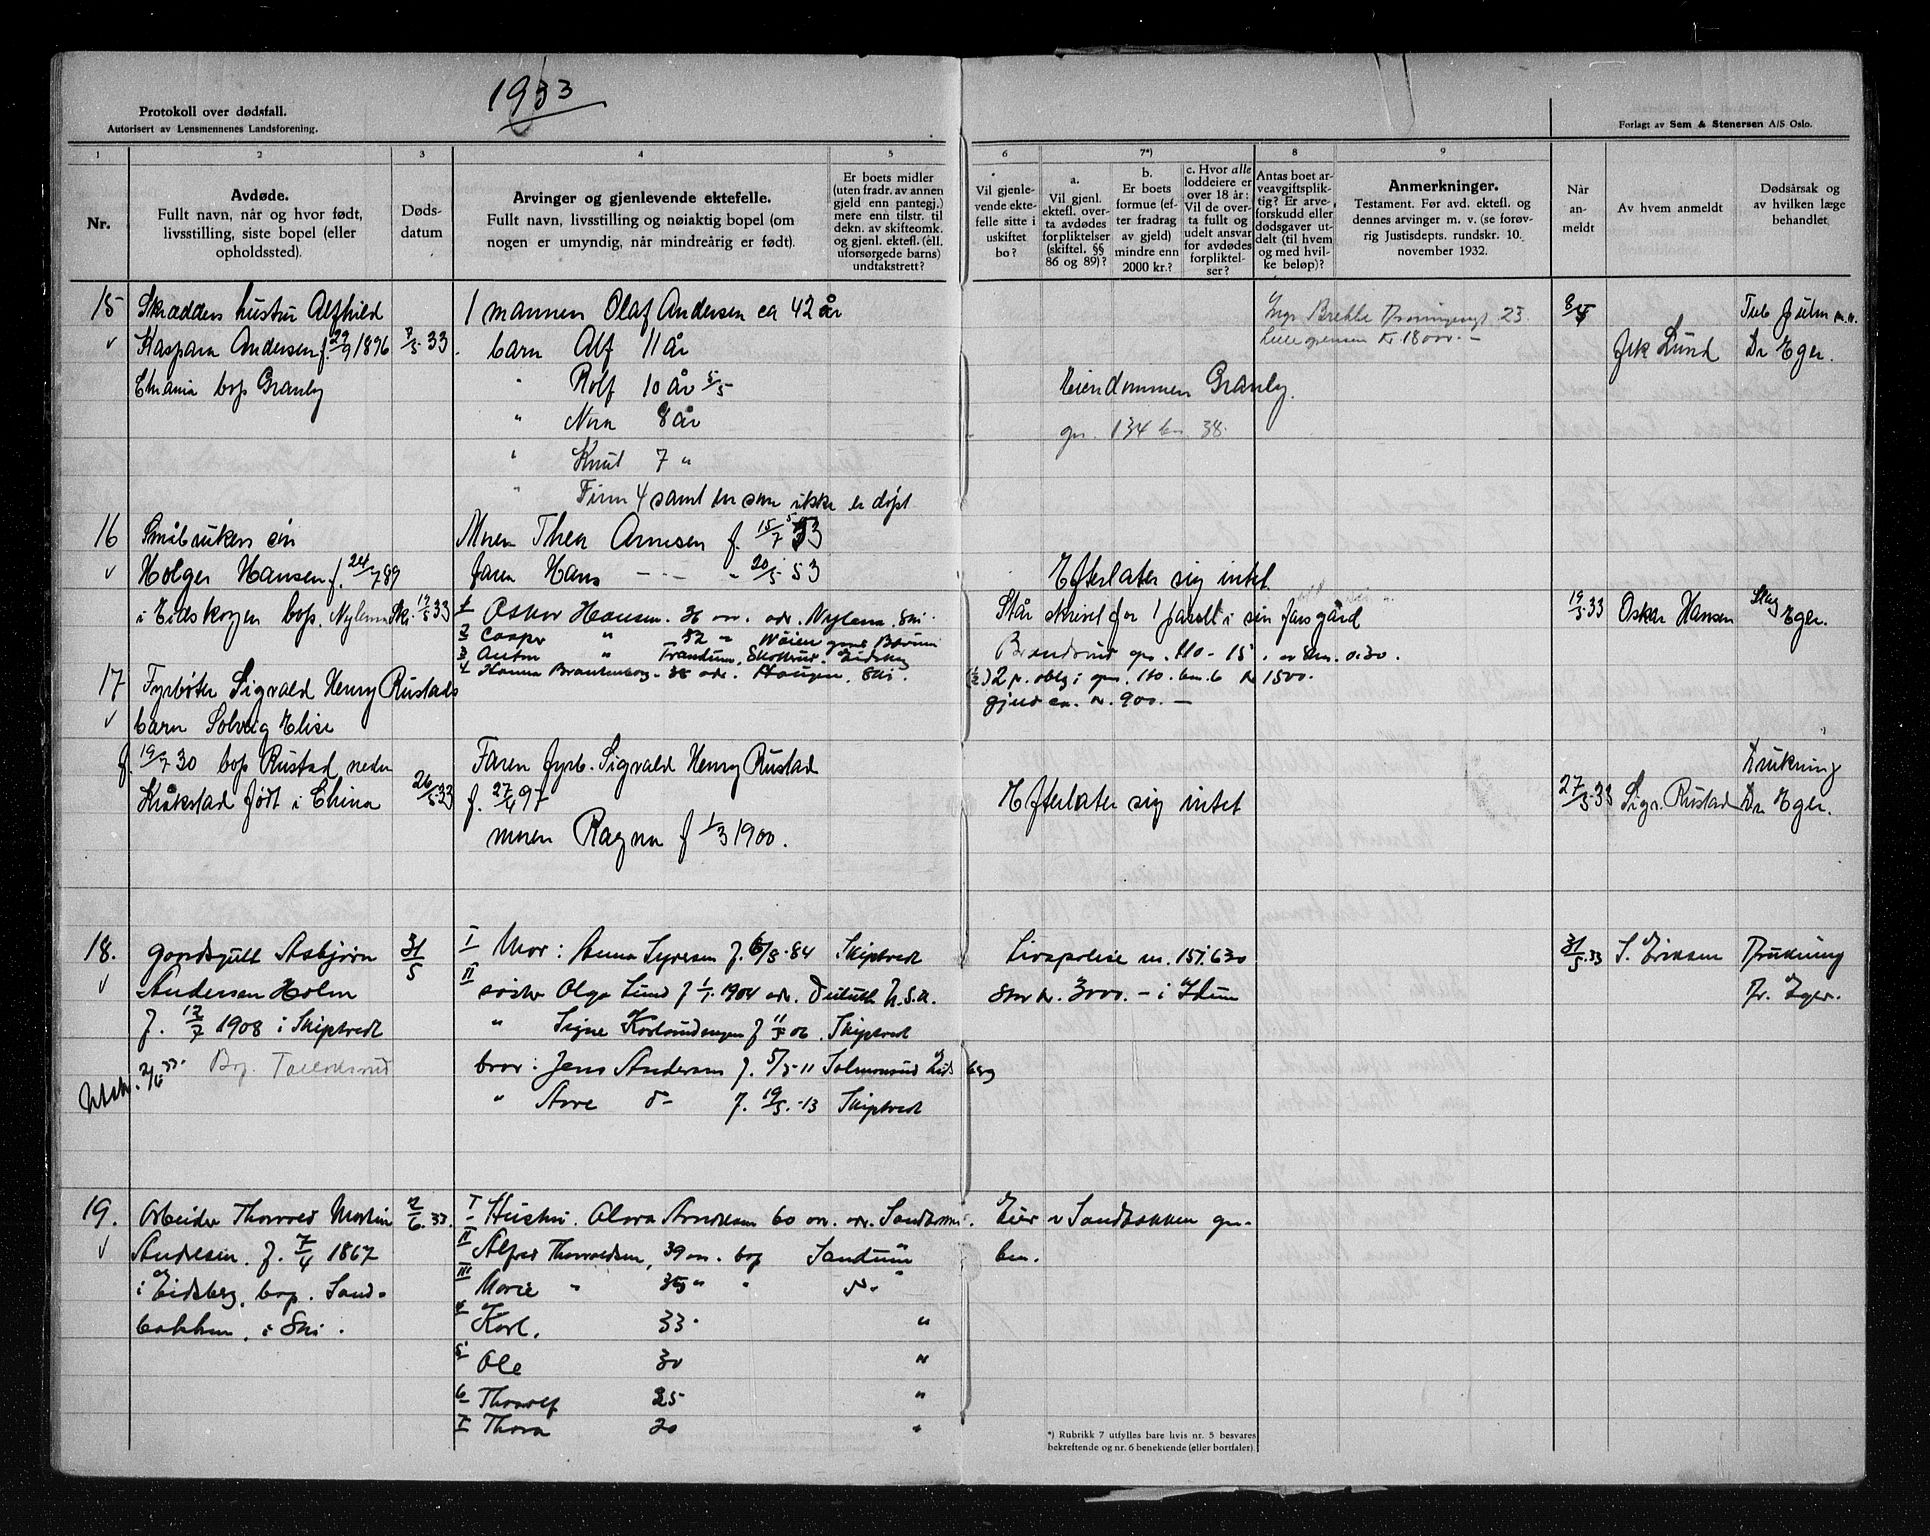 1933
Protokoll over dødsfall.
Autorisert av Lensmennenes Landsforening.
Forlagt av Sem & Stenersen A/S Oslo.
1 2 3 4 5 6 7*) 8 9
Nr.
Avdøde.
Fullt navn, når og hvor født,
livsstilling, siste bopel (eller
opholdssted).
Døds-
datum
Arvinger og gjenlevende ektefelle.
Fullt navn, livsstilling og nøiaktig bopel (om
nogen er umyndig, når mindreårig er født).
Er boets midler
(uten fradr. av annen
gjeld enn pantegj.)
mere enn tilstr. til
dekn. av skifteomk.
og gjenl. ektef. (ell.
uforsørgede barns)
undtakstrett?
Vil gjenle-
vende ekte-
felle sitte i
uskiftet
bo?
a.
Vil gjenl.
ektefl. over-
ta avdødes
forpliktelser
(skiftel. §§
86 og 89)?
b.
Er boets
formue (ef-
ter fradrag
av gjeld)
mindre enn
2000 kr.?
c. Hvor alle
loddeiere er
over 18 år:
Vil de over-
ta fullt og
udelt ansvar
for avdødes
forpliktel-
ser?
Antas boet ar-
veavgiftsplik-
tig? Er arve-
forskudd eller
dødsgaver ut-
delt (til hvem
og med hvil-
ke beløp)?
Anmerkninger.
Testament. Før avd. ektefl. og
dennes arvinger m. v. (se forøv-
rig Justisdepts. rundskr. 10.
november 1932.
Når
an-
meldt
Av hvem anmeldt
Dødsårsak og
av hvilken læge
behandlet.
15 Skrædders hustru Alfhild 1 mannen Olaf Andersen ca 42 år 8/5 Tub
Kaspara Andersen f. 29/9 1896 8/5 33. barn Alf 11 år Kr 18000.- Lund Dr Eger.
Chrania bop Granly " Rolf 10 år 5/5 Eiendommen Granly.
" Nora 8 år gn. 134 bn. 38.
" Knut 7 "
" Finn 4 samt en som ikke er døpt
16 Småbrukers sin Moren Thea Arnesen f. 15/7 53
Holger Hansen f. 24/7 89 faren Hans " 20/5 53 Efterlater sig intet
i Eidskogen bop. Nylenna Ski. 19/5 33 1 Oskar Hansen. 36 Ski Står skrivet for 1 parsell i sin farsgård 19/5 33 Oskar Hansen Eger.
2 Casper " 52 " Bærum gn. 110 - 15.
3 Anton " Trandum, Skotterud. Eidskog
4 Hanna - 38 Haugen, Ski. 2 p. oblg i gn. 110. bn. 6 Kr 1500.
17 Fyrbøter Sigvald Henry Rustads gjeld ca. kr. 900. -
barn Solveig Elise
f. 19/7 30 bop Rustad nedre Faren fyrb. Sigvald Henry Rustad Drukning
Kråkstad født i China 26/5 33 f. 27/4 97 Efterlater sig intet 27/5 33 Sigv. Rustad Dr Eger.
moren Ragna f 1/3 1900.
18. gardsgutt Asbjørn 31/5 I Mor: Anna Syversen f. 6/8-84 Skiptvedt Livspolise nr. 151.630 31/5 33 S. Eriksen Drukning
Andersen Holm II søster Olga Lund f 1/1. 1904 adr. Duluth U.S.A. Stor kr. 3000.- i Idun Dr. Eger.
f. 12/7 1908 i Skiptvedt " Signe f 11/5 06. Skiptvedt
Utskr. 2/6 33. Bop. bror: Jens Andersen f. 5/5-11 Eidsberg
" Arve d- f. 19/5.-13 Skiptvedt
19. Arbeider Thorvald Martin 2/6. 33. I Hustru. Olava Andresen 60 år. adr. Sandbakken. Eier v Sandbakken gn-
Andresen. f. 7/4 1867 II Alfred Thorvaldsen, 39 år. bop Sandum bn.
i Eidsberg. bop. Sand- III Marie " 35 " " "
bakken. i Ski. 4 Karl. 33. "
5 Ole 30 "
6 Thorolf 25 "
7 Thora 20 "
*) Rubrikk 7 utfylles bare hvis nr. 5 besvares
bekreftende og nr. 6 benektende (eller bortfaler).